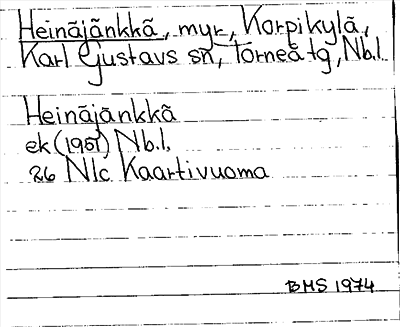 Heinäjänkkä, myr, Korpikylä,
Karl Gustavs sn, Torneå tg, Nb.l.
Heinäjänkkä
ek (1951) Nb.l,
26 Nlc Kaartivuoma
BMS 1974